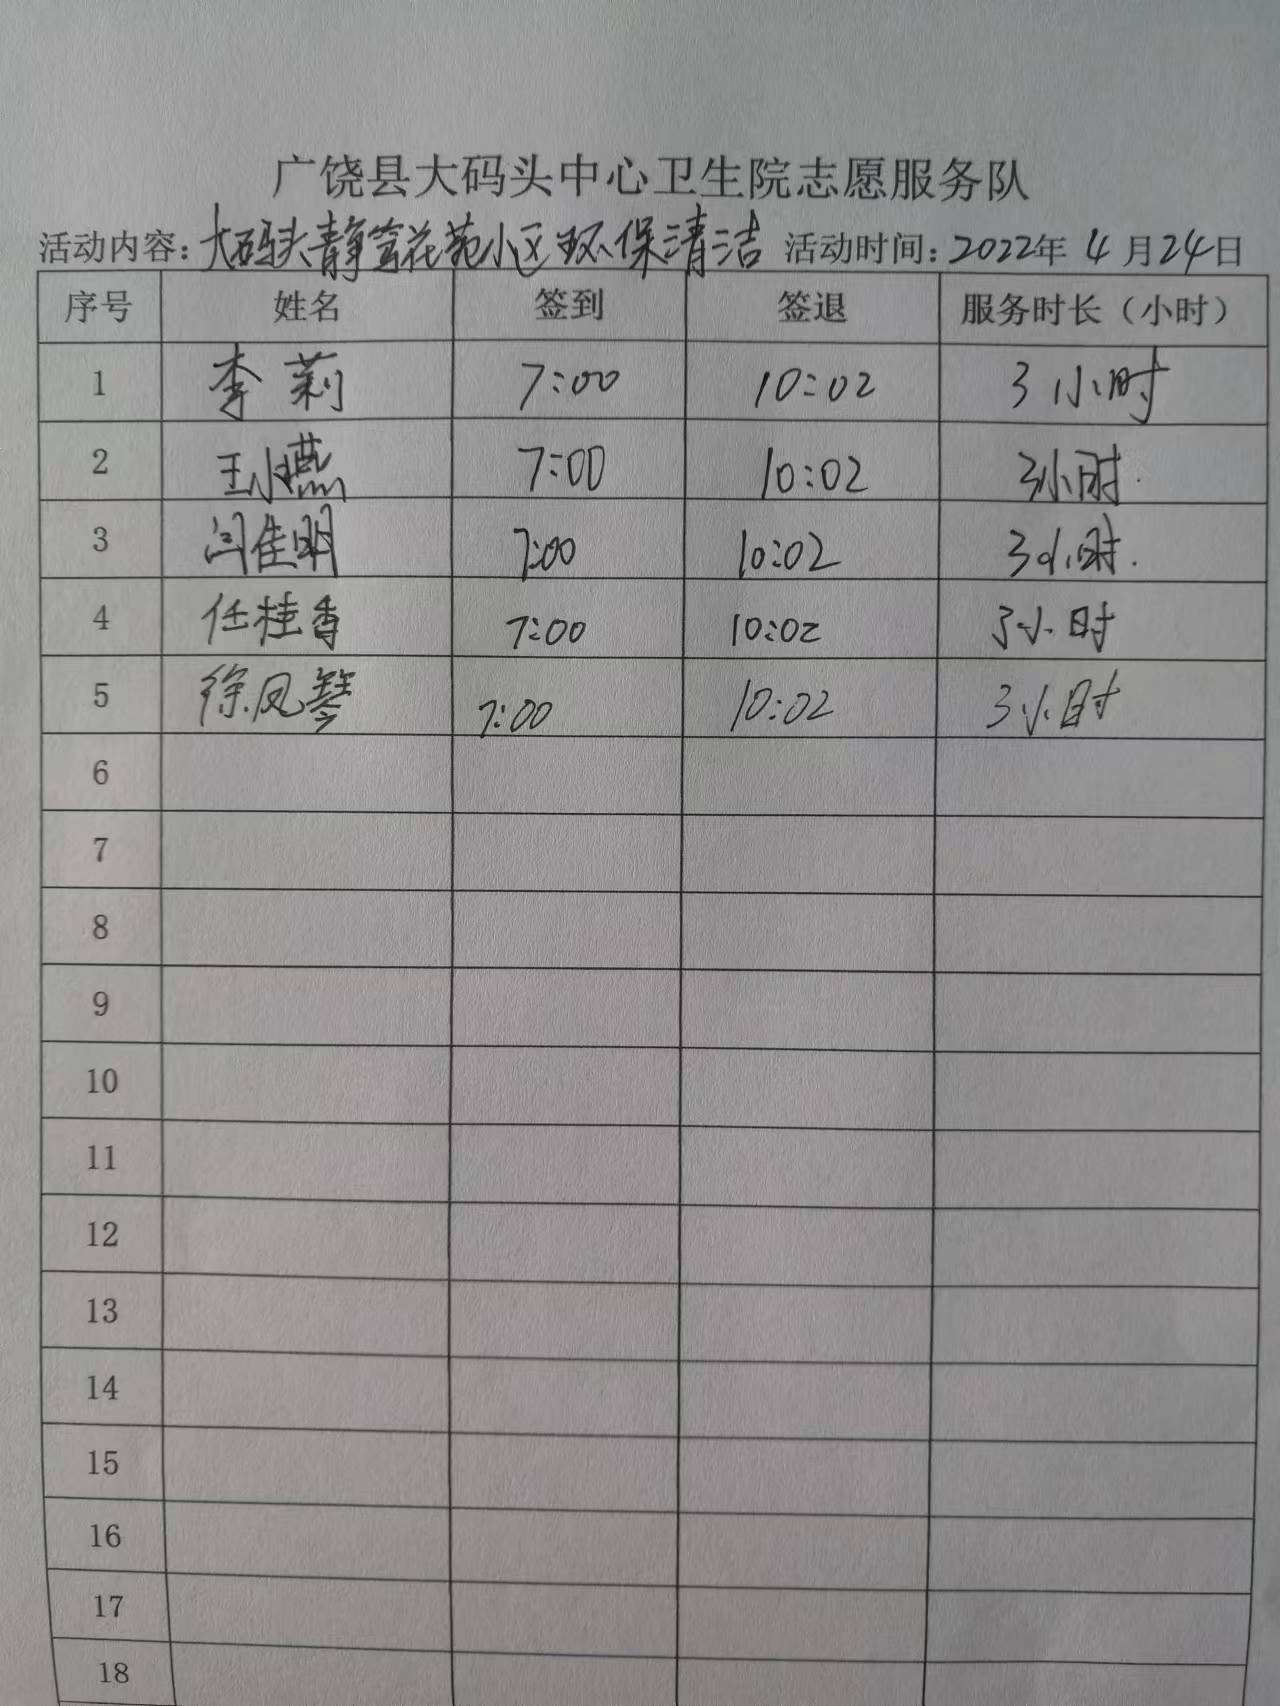 广饶县大码头中心卫生院志愿服务队
活动内容：大码头静 花苑小区环保清洁 活动时间：2022年 4 月 24 日
序号 姓名 签到 签退 服务时长（小时）
1 李莉 7:00 10:02 3小时
2 王小燕 7:00 10:02 3小时.
3 闫佳明 7:00 10:02 3小时.
4 任桂香 7:00 10:02 3小时
5 徐凤琴 7:00 10:02 3小时
6
7
8
9
10
11
12
13
14
15
16
17
18